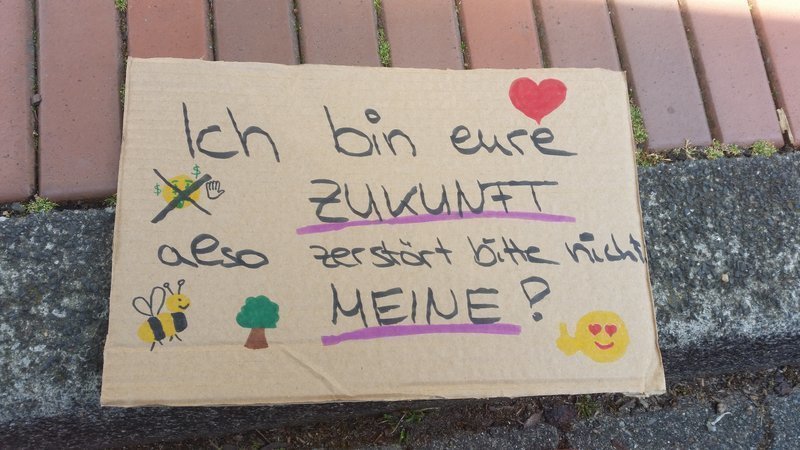 Ich bin eure
ZUKUNFT
also zerstört bitte nicht
MEINE!